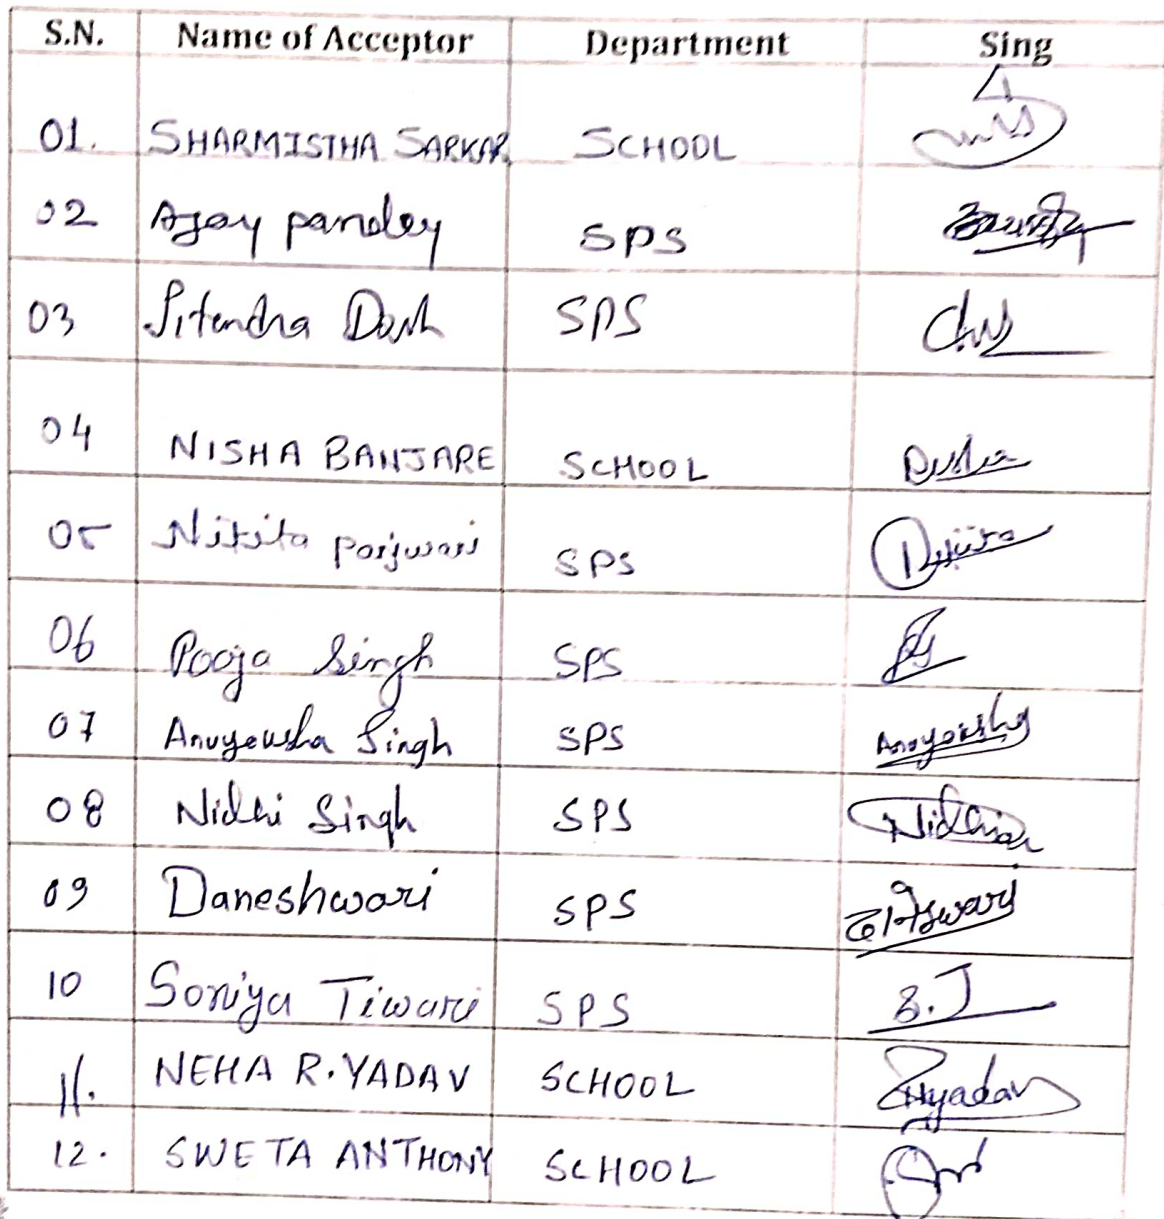 S.N. Name of Acceptor Department Sing
01. SHARMISTHA SARKAR SCHOOL
02 Ajay pandey SPS
03 Jitendra Dash SPS
04 NISHA BANJARE SCHOOL
05 Nikita SPS
06 Pooja Singh SPS
07 Anuyeusha Singh SPS Anuyeusha
08 Nidhi Singh SPS Nidhi
09 Daneshwari SPS
10 Soniya Tiwari SPS S.T
11. NEHA R. YADAV SCHOOL NRyadav
12. SWETA ANTHONY SCHOOL